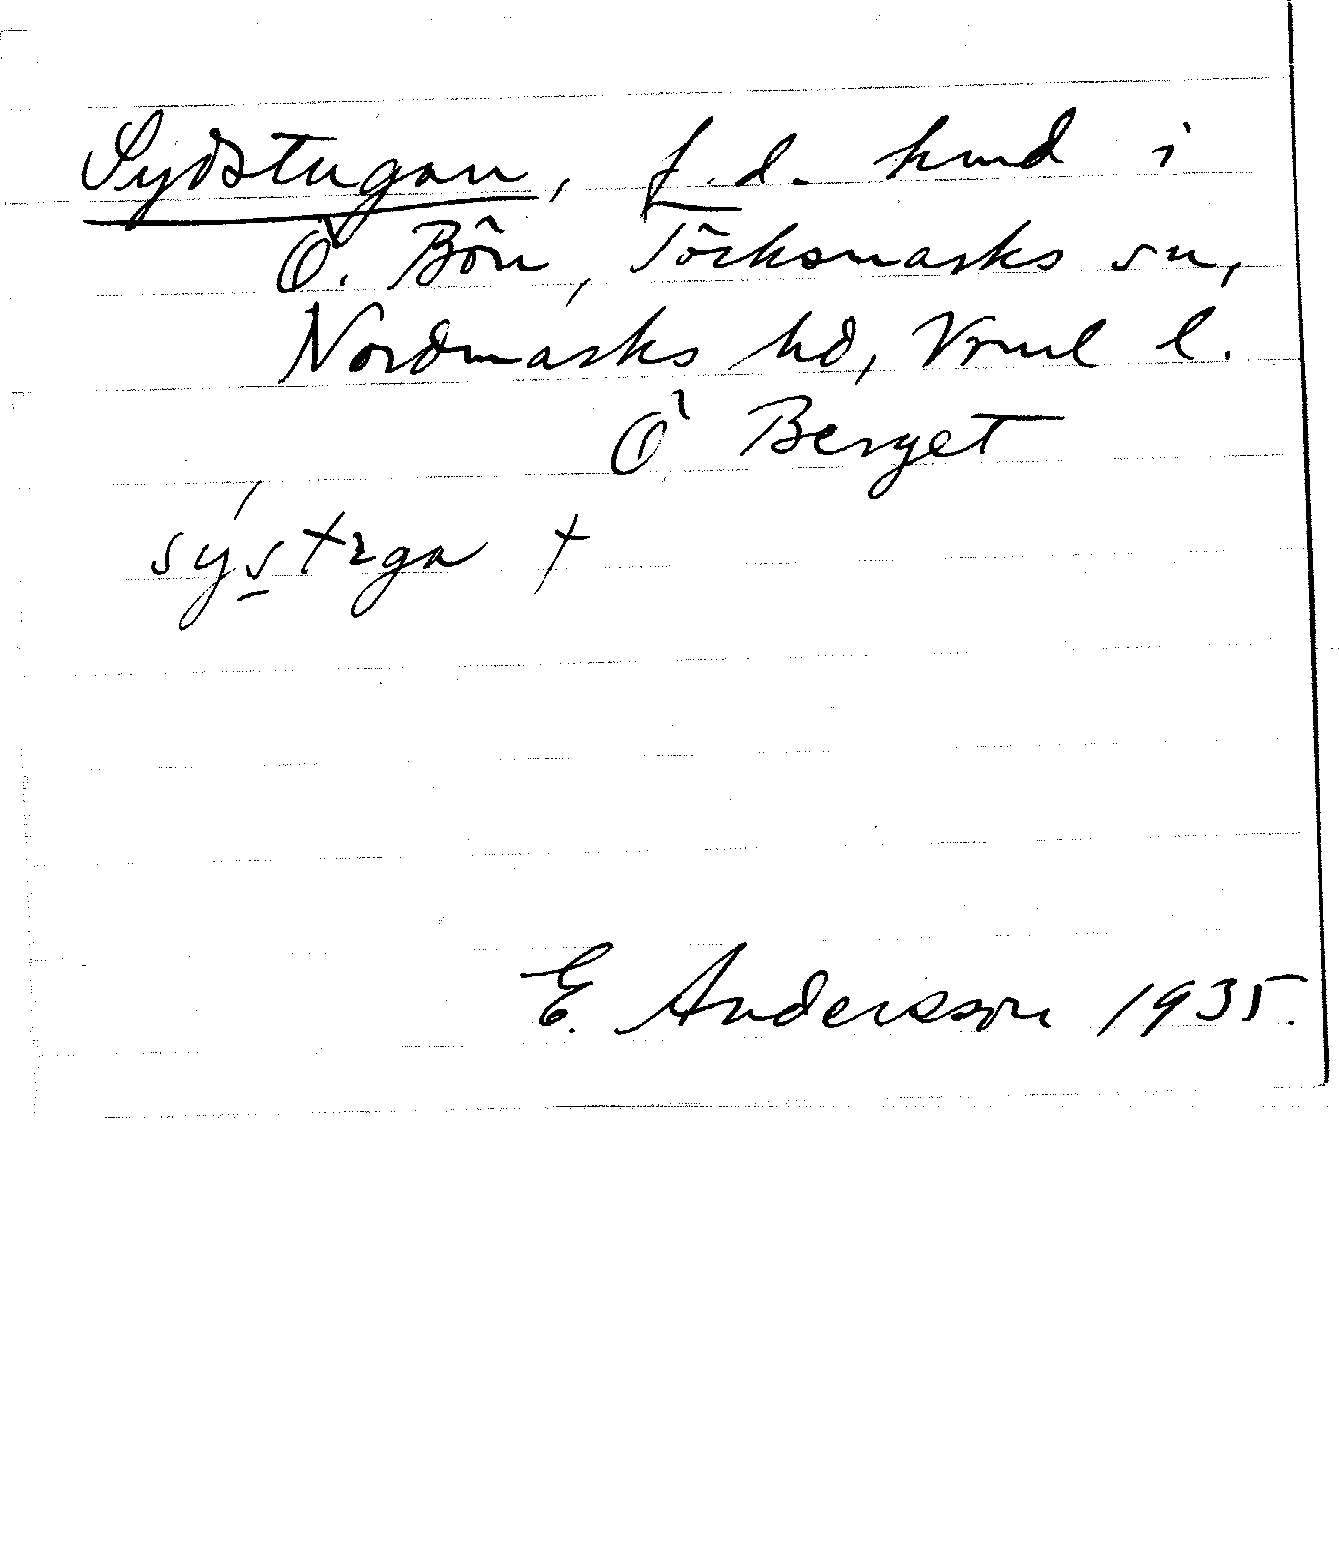 Sydstugan, f.d. hmd i
Ö. Bön, Töcksmarks sn,
Nordmarks hd, Vrml l.
Ö Berget
sýstꝛga +
E. Andersson 1935.